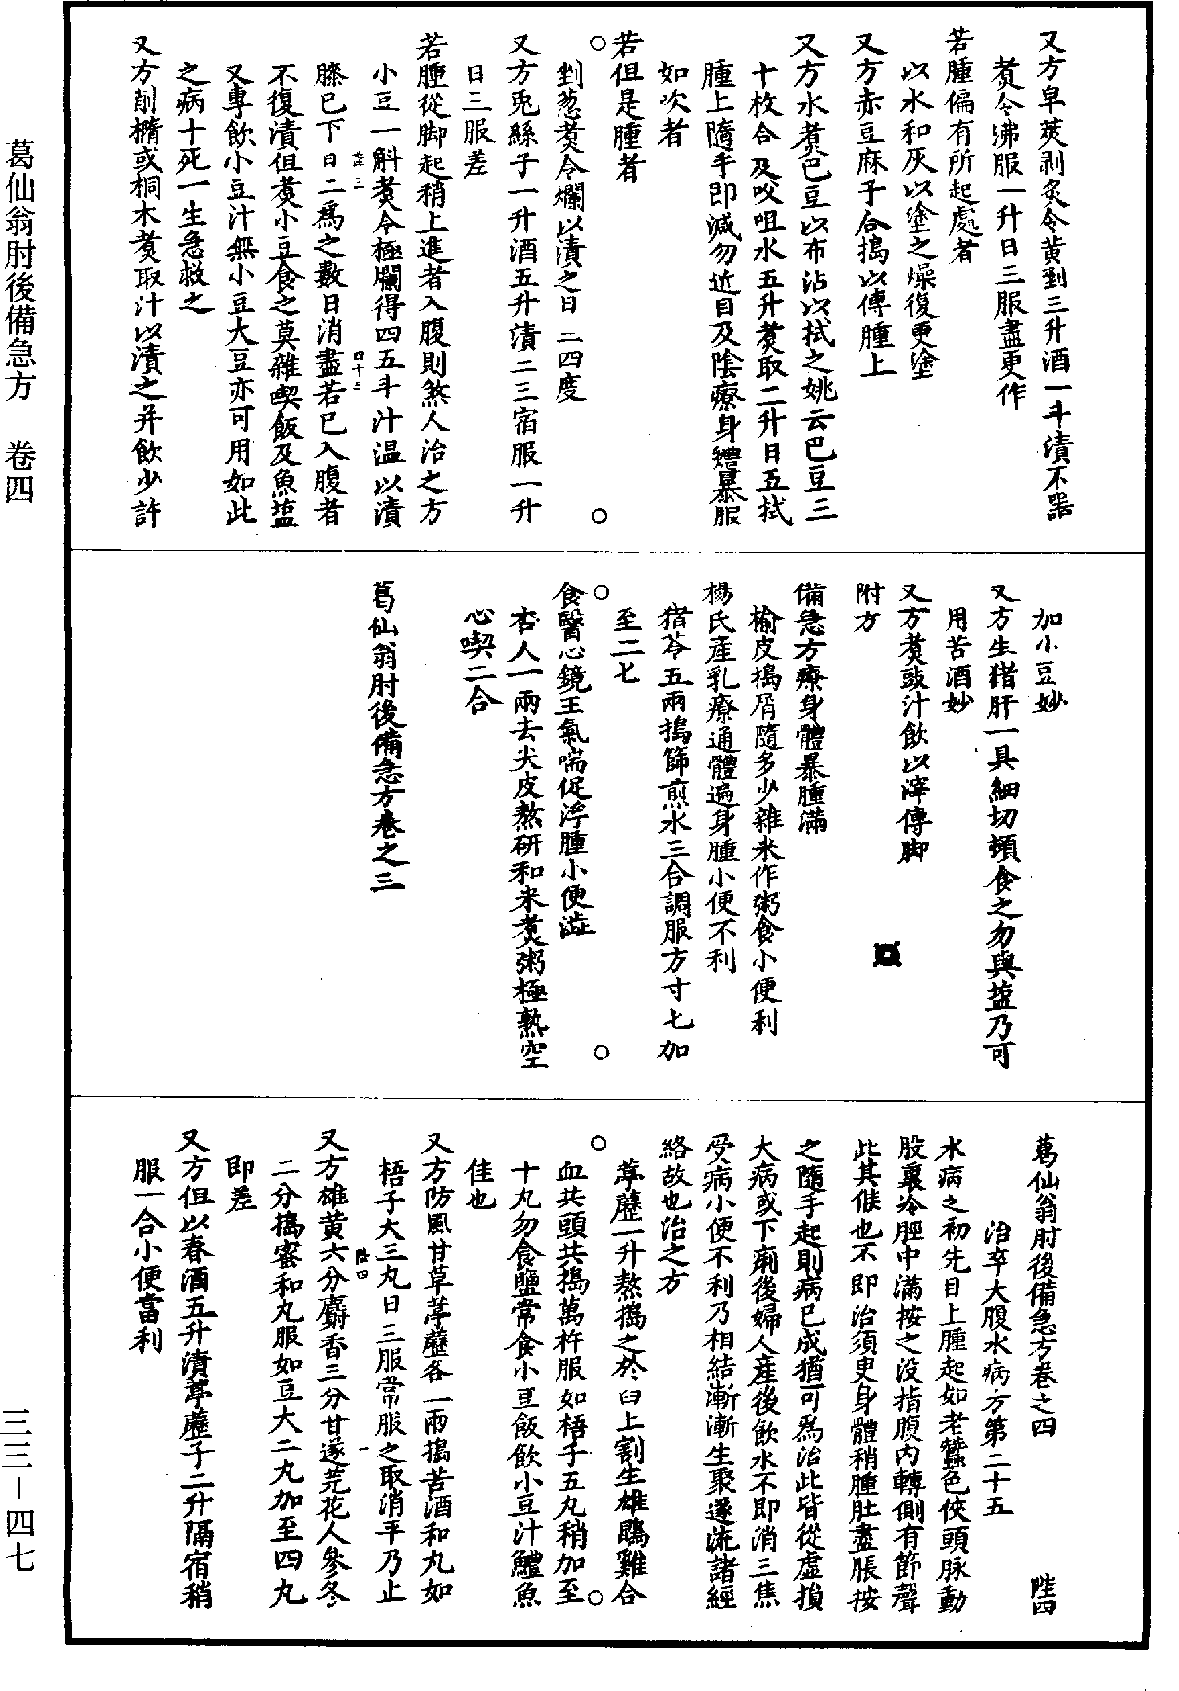 葛仙翁肘後備急方　卷四
三三－四七
又方皁莢剥炙令黄剉三升酒一斗漬不器
煑令沸服一升日三服盡更作
若腫偏有所起處者
以水和灰以塗之燥復更塗
又方赤豆麻子合搗以傅腫上
又方水煑巴豆以布沾以拭之姚云巴豆三
十枚合及㕮咀水五升煑取二升日五拭
腫上隨手即減勿近目及陰療身體暴腫
如吹者
若但是腫者
○　○
剉葱煑令爛以漬之日二四度
又方兎絲子一升酒五升漬二三宿服一升
日三服差
若腫從脚起稍上進者入腹則煞人治之方
小豆一斛煑令極爛得四五斗汁温以漬
膝已下日二爲之數日消盡若已入腹者
不復漬但煑小豆食之莫雜喫飯及魚塩
又專飲小豆汁無小豆大豆亦可用如此
之病十死一生急救之
又方削檆或桐木煑取汁以漬之并飲少許
加小豆妙
又方生猪肝一具細切頓食之勿與塩乃可
用苦酒妙
又方煑豉汁飲以滓傅脚
附方
備急方療身體暴腫滿
榆皮搗屑隨多少雜米作粥食小便利
楊氏產乳療通體遍身腫小便不利
猪苓五兩搗篩煎水三合調服方寸七加
至二七
○　○
食醫心鏡主氣喘促浮腫小便澁
杏人一兩去尖皮熬研和米煑粥極熟空
心喫二合
葛仙翁肘後備急方卷之三
葛仙翁肘後備急方卷之四　陞四
治卒大腹水病方第二十五
水病之初先目上腫起如老蠶色俠頭脉動
股裏冷脛中滿按之没指腹内轉側有節聲
此其候也不即治須臾身體稍腫肚盡脹按
之隨手起則病已成猶可爲治此皆從虚損
大病或下痢後婦人產後飲水不即消三焦
受病小便不利乃相結漸漸生聚遂流諸經
絡故也治之方
葶藶一升熬搗之於臼上割生雄鵾雞合
○　○
血共頭共搗萬杵服如梧子五丸稍加至
十丸勿食鹽常食小豆飯飲小豆汁鱧魚
佳也
又方防風甘草葶藶各一兩搗苦酒和丸如
梧子大三丸日三服常服之取消平乃止
陞四　一
又方雄黄六分麝香三分甘遂芫花人參各
二分擣蜜和丸服如豆大二丸加至四丸
即差
又方但以春酒五升漬葶藶子二升隔宿稍
服一合小便當利